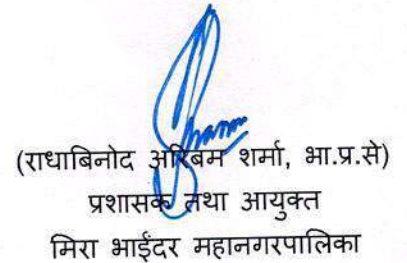 (राधाबिनोद अरिबम शर्मा, भा.प्र.से)
प्रशासक तथा आयुक्त
मिरा भाईंदर महानगरपालिका